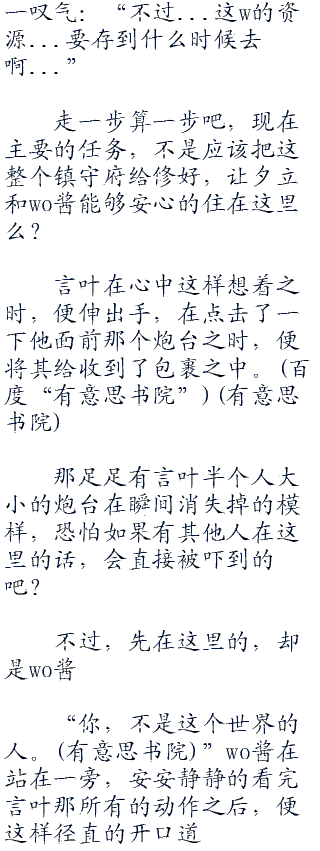 一叹气：“不过...这w的资
源...要存到什么时候去
啊...”
走一步算一步吧，现在
主要的任务，不是应该把这
整个镇守府给修好，让夕立
和wo酱能够安心的住在这里
么？
言叶在心中这样想着之
时，便伸出手，在点击了一
下他面前那个炮台之时，便
将其给收到了包裹之中。(百
度“有意思书院”)(有意思
书院)
那足足有言叶半个人大
小的炮台在瞬间消失掉的模
样，恐怕如果有其他人在这
里的话，会直接被吓到的
吧？
不过，先在这里的，却
是wo酱
“你，不是这个世界的
人。(有意思书院)”wo酱在
站在一旁，安安静静的看完
言叶那所有的动作之后，便
这样径直的开口道